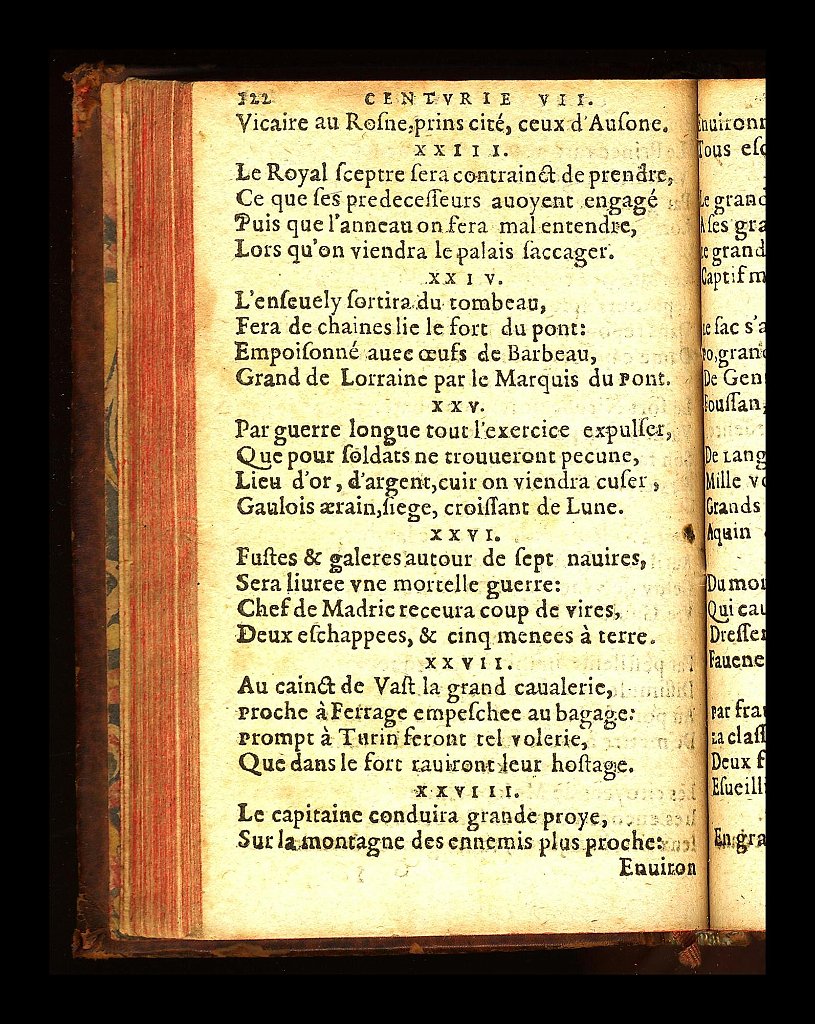 122 CENTVRIE VII.
Vicaire au Roſne,prins cité, ceux d'Auſone.
XXIII.
Le Royal ſceptre ſera contrainct de prendre,
Ce que ſes predeceſſeurs auoyent engagé
Puis que l'anneau on fera mal entendre,
Lors qu'on viendra le palais ſaccager.
XXIV.
L'enſeuely ſortira du tombeau,
Fera de chaines lie le fort du pont:
Empoiſonné auec œufs de Barbeau,
Grand de Lorraine par le Marquis du Pont.
XXV.
Par guerre longue tout l'exercice expulſer,
Que pour ſoldats ne trouueront pecune,
Lieu d'or, d'argent,cuir on viendra cuſer,
Gaulois ærain,ſiege, croiſſant de Lune.
XXVI.
Fuſtes & galeres autour de ſept nauires,
Sera liuree vne mortelle guerre:
Chef de Madric receura coup de vires,
Deux eſchappees, & cinq menees à terre.
XXVII.
Au cainct de Vaſt la grand caualerie,
Proche à Ferrage empeſchee au bagage:
Prompt à Turin feront tel volerie,
Que dans le fort rauiront leur hoſtage.
XXVIII.
Le capitaine conduira grande proye,
Sur la montagne des ennemis plus proche:
Enuiron
Tous
Le grand
A ſes
grand
Captif
ſac s'a
De
De
Mille
Grands
Aquin
Du
Qui
Par
Deux
En